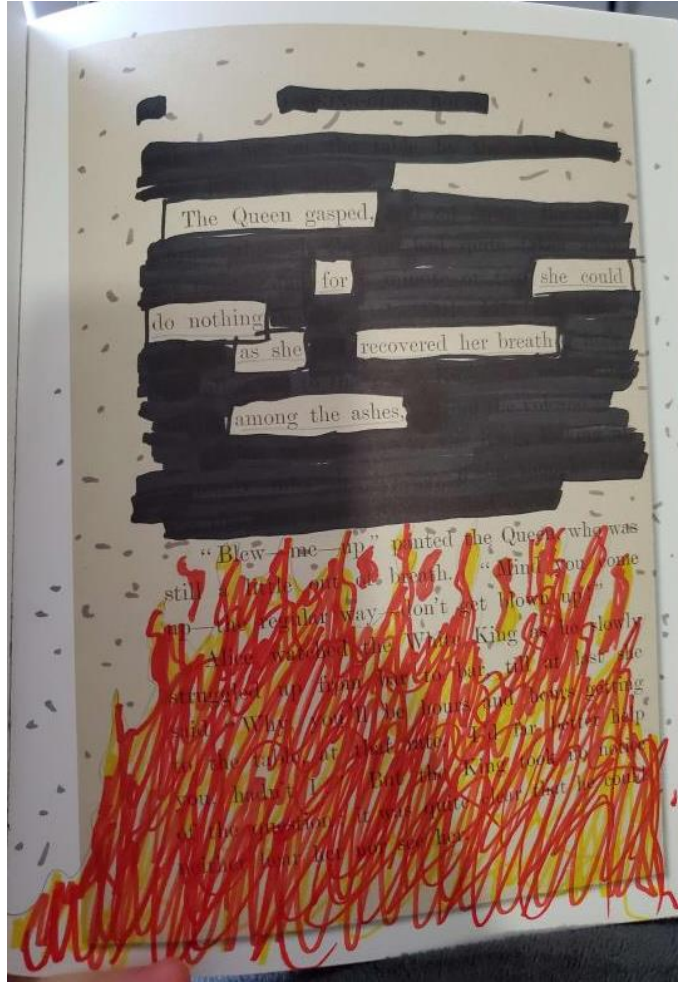 The Queen gasped,
for she could
do nothing
as she recovered her breath
among the ashes,
“Blew—me—up,” panted the Queen, who was
still a little out of breath. “Mind you come
up—the regular way—don't get blown up!”
Alice watched the White King as he slowly
struggled up from bar to bar, till at last she
said “Why, you'll be hours and hours getting
to the table, at that rate. I'd far better help
you, hadn't I” But the King took no notice
of the question: it was quite clear that he could
neither hear her nor see her.